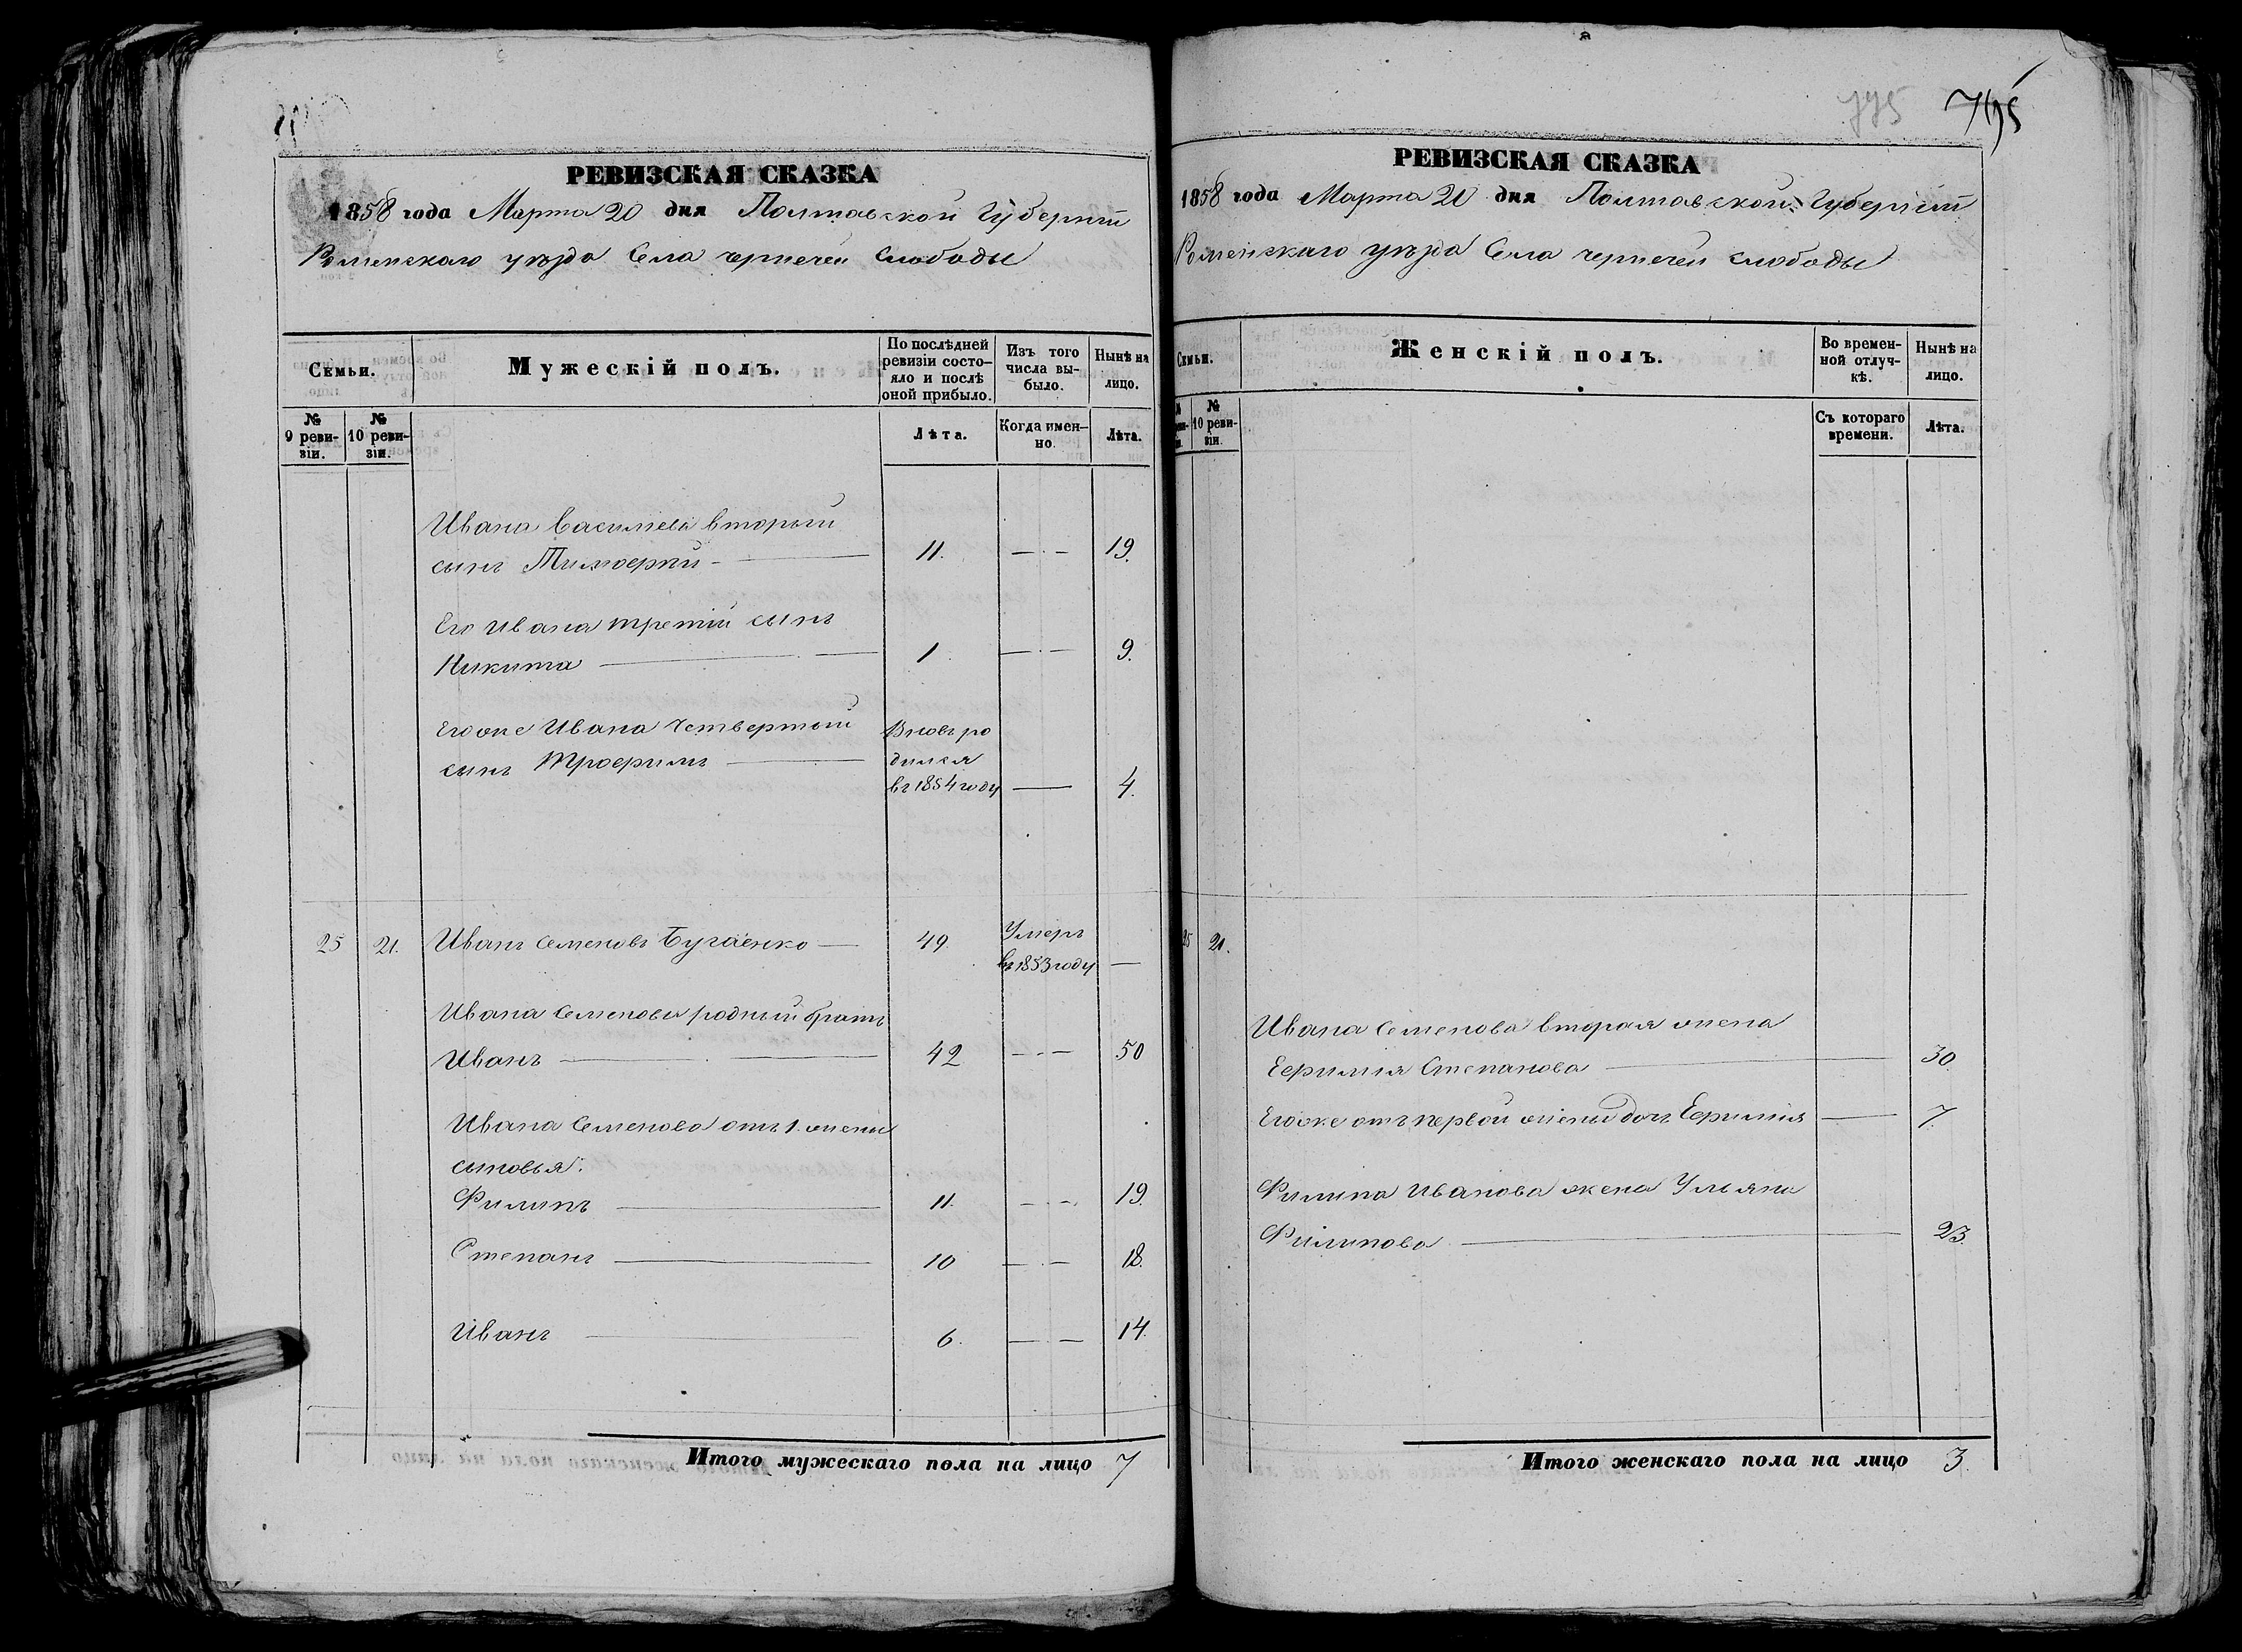 РЕВИЗСКАЯ СКАЗКА
1858 года Марта 20 дня Полтавской Губерніи
Роменскаго уѣзда Села чернечей Слободы
Семьи.
Мужескій полъ.
По послѣдней ревизіи состо-
яло и послѣ
оной прибыло.
Изъ того
числа вы-
было.
Нынѣ на
лицо.
№
9 реви-
зіи.
№
10 реви-
зіи.
Лѣта.
Когда имен-
но.
Лѣта.
Ивана Васильева вторый
сынъ Тимофей 11. 19.
Его Ивана третій сынъ
Никита 1. 9.
Егоже Ивана четвертый
сынъ Трофимъ
Вновь ро
дился
въ 1854 году 4.
25 21. Иванъ Семеновъ Бугаенко 49. Умеръ
въ 1853 году
Ивана Семенова родный братъ
Иванъ 42 50
Ивана Семенова отъ 1. жены
сыновья:
Филипъ 11. 19.
Степанъ 10 18.
Иванъ 6. 14.
Итого мужескаго пола на лицо 7
775 795
РЕВИЗСКАЯ СКАЗКА
1858 года Марта 20 дня Полтавской Губерніи
Роменскаго уѣзда Села чернечей слободы
Семьи.
Женскій полъ.
Во времен-
ной отлуч-
кѣ.
Нынѣ на
лицо.
№
10 реви-
зіи.
Съ котораго
времени.
Лѣта.
25 21.
Ивана Семенова вторая жена
Ефимия Степанова 30.
Егоже отъ первой жены дочь Ефимия 7.
Филипа Иванова жена Ульяна
Филипова 23.
Итого женскаго пола на лицо 3.